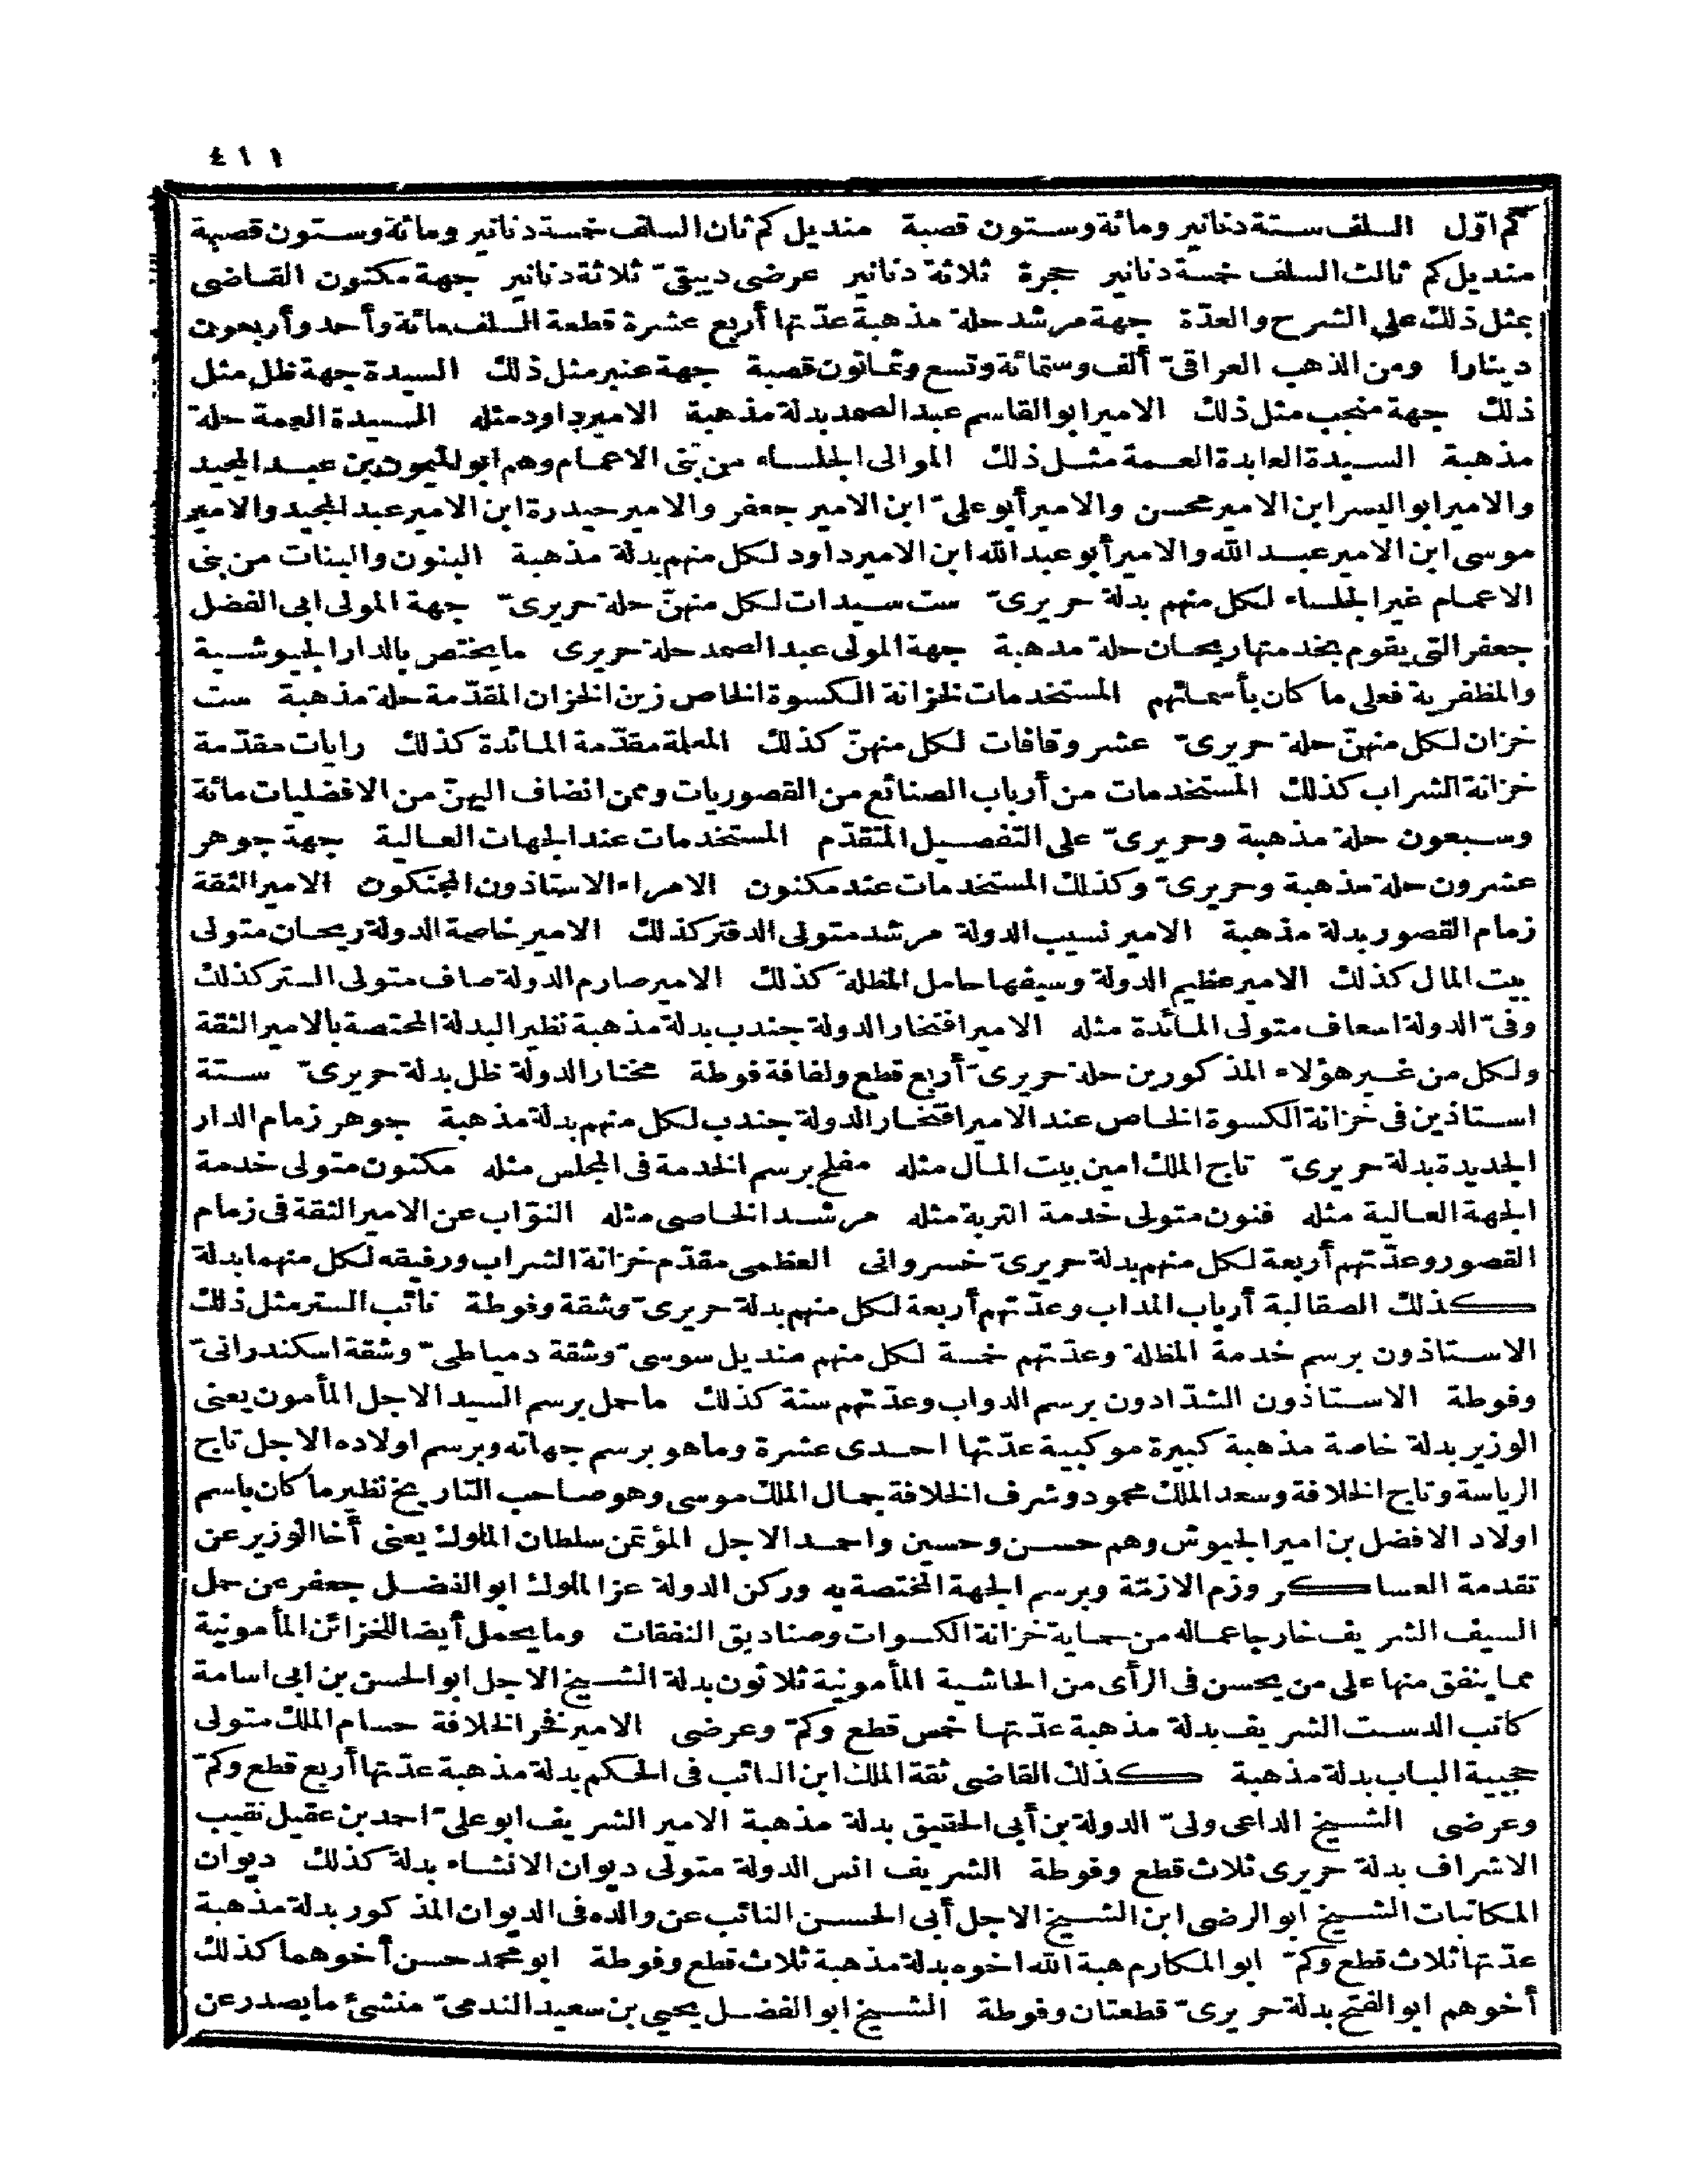 ٤١١
كم اوّل السلف ستة دنانير ومائة وستون قصبة منديل كم ثان السلف خمسة دنانير ومائة وستون قصبة
منديل كم ثالث السلف خمسة دنانير حجرة ثلاثة دنانير عرضى ديبقىّ ثلاثة دنانير جهة مكنون القاضى
بمثل ذلك على الشرح والعدّة جهة مرشد حلة مذهبة عدّتها أربع عشرة قطعة السلف مائة وأحد وأربعون
دينارا ومن الذهب العراقىّ ألف وستمائة وتسع وثمانون قصبة جهة عنبر مثل ذلك السيدة جهة ظل مثل
ذلك جهة منجب مثل ذلك الامير ابو القاسم عبد الصمد بدلة مذهبة الامير داود مثله السيدة العمة حلة
مذهبة السيدة العابدة العمة مثل ذلك الموالى الجلساء من بنى الاعمام وهم ابو الميمون بن عبد المجيد
والامير ابو اليسر ابن الامير محسن والامير أبو علىّ ابن الامير جعفر والامير حيدرة ابن الامير عبد المجيد والامير
موسى ابن الامير عبد الله والامير أبو عبد الله ابن الامير داود لكل منهم بدلة مذهبة البنون والبنات من بنى
الاعمام غير الجلساء لكل منهم بدلة حريرىّ ست سيدات لكل منهنّ حلة حريرىّ جهة المولى ابى الفضل
جعفر التى يقوم بخدمتها ريحان حلة مدهبة جهة المولى عبد الصمد حلة حريرى ما يختص بالدار الجيوشية
والمظفرية فعلى ما كان بأسمائهم المستخدمات لخزانة الكسوة الخاص زين الخزان المقدّمة حلة مذهبة ست
خزان لكل منهنّ حلة حريرىّ عشر وقافات لكل منهنّ كذلك المعلمة مقدّمة المائدة كذلك رايات مقدّمة
خزانة الشراب كذلك المستخدمات من أرباب الصنائع من القصوريات وممن انضاف اليهنّ من الافضليات مائة
وسبعون حلة مذهبة وحريرىّ على التفصيل المتقدّم المستخدمات عند الجهات العالية جهة جوهر
عشرون حلة مذهبة وحريرىّ وكذلك المستخدمات عند مكنون الامراء الاستاذون المحنكون الامير الثقة
زمام القصور بدلة مذهبة الامير نسيب الدولة مرشد متولى الدفتر كذلك الامير خاصة الدولة ريحان متولى
بيت المال كذلك الامير عظيم الدولة وسيفها حامل المظلة كذلك الامير صارم الدولة صاف متولى الستر كذلك
وفىّ الدولة اسعاف متولى المائدة مثله الامير افتخار الدولة جندب بدلة مذهبة نظير البدلة المختصة بالامير الثقة
ولكل من غير هؤلاء المذكورين حلة حريرىّ أربع قطع ولفافة فوطة مختار الدولة ظل بدلة حريرىّ ستة
استاذين فى خزانة الكسوة الخاص عند الامير افتخار الدولة جندب لكل منهم بدلة مذهبة جوهر زمام الدار
الجديدة بدلة حريرىّ تاج الملك امين بيت المال مثله مفلح برسم الخدمة فى المجلس مثله مكنون متولى خدمة
الجهة العالية مثله فنون متولى خدمة التربة مثله مرشد الخاصى مثله النوّاب عن الامير الثقة فى زمام
القصور وعدّتهم أربعة لكل منهم بدلة حريرىّ خسروانى العظمى مقدّم خزانة الشراب ورفيقه لكل منهما بدلة
كذلك الصقالبة أرباب المداب وعدّتهم أربعة لكل منهم بدلة حريرىّ وشقة وفوطة نائب الستر مثل ذلك
الاستاذون برسم خدمة المظلة وعدّتهم خمسة لكل منهم منديل سوسىّ وشقة دمياطىّ وشقة اسكندرانىّ
وفوطة الاستاذون الشدّادون برسم الدواب وعدّتهم ستة كذلك ما حمل برسم السيد الاجل المأمون يعنى
الوزير بدلة خاصة مذهبة كبيرة موكبية عدّتها احدى عشرة وما هو برسم جهاته وبرسم اولاده الاجل تاج
الرياسة وتاج الخلافة وسعد الملك محمود وشرف الخلافة جمال الملك موسى وهو صاحب التاريخ نظير ما كان باسم
اولاد الافضل بن امير الجيوش وهم حسن وحسين واحمد الاجل المؤتمن سلطان الملوك يعنى أخا الوزير عن
تقدمة العساكر وزم الازمّة وبرسم الجهة المختصة به وركن الدولة عز الملوك ابو الفضل جعفر عن حمل
السيف الشريف خارجا عماله من حماية خزانة الكسوات وصناديق النفقات وما يحمل أيضا للخزائن المأمونية
مما ينفق منها على من يحسن فى الرأى من الحاشية المأمونية ثلاثون بدلة الشيخ الاجل ابو الحسن بن ابى اسامة
كاتب الدست الشريف بدلة مذهبة عدّتها خمس قطع وكمّ وعرضى الامير فخر الخلافة حسام الملك متولى
حجبية الباب بدلة مذهبة كذلك القاضى ثقة الملك ابن النائب فى الحكم بدلة مذهبة عدّتها أربع قطع وكمّ
وعرضى الشيخ الداعى ولىّ الدولة بن أبى الحقيق بدلة مذهبة الامير الشريف ابو علىّ احمد بن عقيل نقيب
الاشراف بدلة حريرى ثلاث قطع وفوطة الشريف انس الدولة متولى ديوان الانشاء بدلة كذلك ديوان
المكاتبات الشيخ ابو الرضى ابن الشيخ الاجل أبى الحسن النائب عن والده فى الديوان المذكور بدلة مذهبة
عدّتها ثلاث قطع وكمّ ابو المكارم هبة الله اخوه بدلة مذهبة ثلاث قطع وفوطة ابو محمد حسن أخوهما كذلك
أخوهم ابو الفتح بدلة حريرىّ قطعتان وفوطة الشيخ ابو الفضل يحيى بن سعيد الندمىّ منشئ ما يصدر عن